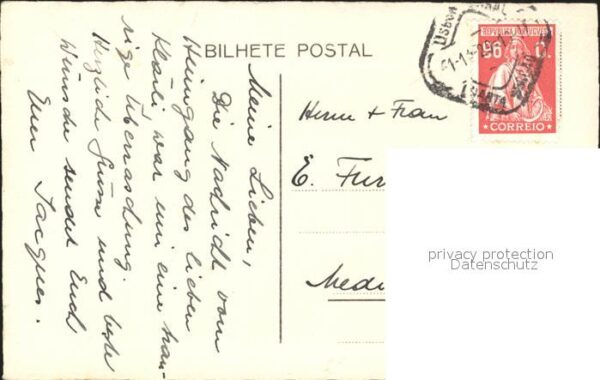 BILHETE POSTAL
Meine Lieben,
Die Nachricht vom
Heimgang des lieben
Kläri war mir eine trau-
rige Überraschung.
Herzliche Grüsse und beste
Wünsche sendet Euch
Euer Jacques.
Herrn + Frau
E. Fur
Medi
REPUBLICA PORTUGUESA
96 C.
CORREIO
Lisboa CENTRAL
privacy protection
Datenschutz